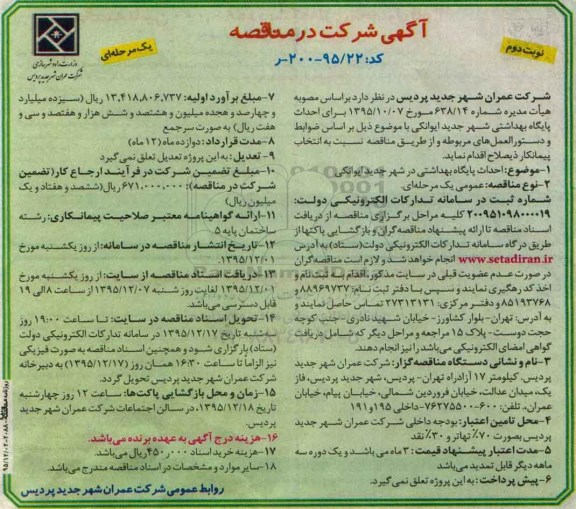 آگهی شرکت در مناقصه
کد: ۹۵/۲۲-۲۰۰-ر
نوبت دوم
یک مرحله‌ای
وزارت راه و شهرسازی
شرکت عمران شهر جدید پردیس
شرکت عمران شهر جدید پردیس در نظر دارد براساس مصوبه
هیأت مدیره شماره ۶۳۸/۱۴ مورخ ۱۳۹۵/۱۰/۰۷ برای احداث
پایگاه بهداشتی شهر جدید ایوانکی با موضوع ذیل بر اساس ضوابط
و دستورالعمل‌های مربوطه و از طریق مناقصه نسبت به انتخاب
پیمانکار ذیصلاح اقدام نماید.
۱-موضوع: احداث پایگاه بهداشتی در شهر جدید ایوانکی
۲-نوع مناقصه: عمومی یک مرحله‌ای.
شماره ثبت در سامانه تدارکات الکترونیکی دولت:
۲۰۰۹۵۱۰۹۸۰۰۰۰۱۹ کلیه مراحل برگزاری مناقصه از دریافت
اسناد مناقصه تا ارائه پیشنهاد مناقصه گران و بازگشایی پاکتها از
طریق درگاه سامانه تدارکات الکترونیکی دولت(ستاد) به آدرس
www.setadiran.ir انجام خواهد شد و لازم است مناقصه گران
در صورت عدم عضویت قبلی در سایت مذکور، اقدام به ثبت نام و
اخذ کد رهگیری نمایند و سپس با دفتر ثبت نام: ۸۸۹۶۹۷۳۷ و
۸۵۱۹۳۷۶۸ و دفتر مرکزی: ۲۷۳۱۳۱۳۱ تماس حاصل نمایند و
به آدرس: تهران- بلوار کشاورز- خیابان شهید نادری- جنب کوچه
حجت دوست- پلاک ۱۵ مراجعه و مراحل دیگر که شامل دریافت
گواهی امضای الکترونیکی می‌باشد را نیز انجام دهند.
۳-نام و نشانی دستگاه مناقصه‌گزار: شرکت عمران شهر جدید
پردیس. کیلومتر ۱۷ آزادراه تهران- پردیس، شهر جدید پردیس، فاز
یک، میدان عدالت، خیابان فروردین شمالی، خیابان پیام، خیابان
عمران، تلفن: ۶۰۰-۷۶۲۷۵۵۰۰- داخلی ۱۹۵ و ۱۹۱
۴-محل تامین اعتبار: بودجه داخلی شرکت عمران شهر جدید
پردیس بصورت ۷۰٪ تهاتر و ۳۰٪ نقد
۵-مدت اعتبار پیشنهاد قیمت: ۳ ماه می باشد و یک دوره سه
ماهه دیگر قابل تمدید می‌باشد
۶-پیش پرداخت: به این پروژه تعلق نمی گیرد.
۷-مبلغ برآورد اولیه: ۱۳,۴۱۸,۸۰۶,۷۳۷ ریال (سیزده میلیارد
و چهارصد و هجده میلیون و هشتصد و شش هزار و هفتصد و سی و
هفت ریال) به صورت سرجمع
۸-مدت قرارداد: دوازده ماه (۱۲ ماه)
۹- تعدیل: به این پروژه تعدیل تعلق نمی گیرد
۱۰-مبلغ تضمین شرکت در فرآیند ارجاع کار (تضمین
شرکت در مناقصه): ۶۷۱,۰۰۰,۰۰۰ ریال (ششصد و هفتاد و یک
میلیون ریال)
۱۱-ارائه گواهینامه معتبر صلاحیت پیمانکاری: رشته
ساختمان پایه ۵
۱۲-تاریخ انتشار مناقصه در سامانه: از روز یکشنبه مورخ
۱۳۹۵/۱۲/۰۱.
۱۳-دریافت اسناد مناقصه از سایت: از روز یکشنبه مورخ
۱۳۹۵/۱۲/۰۱ لغایت روز شنبه ۱۳۹۵/۱۲/۰۷ از ساعت ۸ الی ۱۹
قابل دسترسی می‌باشد.
۱۴-تحویل اسناد مناقصه در سایت: تا ساعت ۱۹:۰۰ روز
سه‌شنبه تاریخ ۱۳۹۵/۱۲/۱۷ در سامانه تدارکات الکترونیکی دولت
(ستاد) بارگزاری شود و همچنین اسناد مناقصه به صورت فیزیکی
نیز الزاماً تا ساعت ۱۶:۳۰ همان روز (۱۳۹۵/۱۲/۱۷) به دبیرخانه
شرکت عمران شهر جدید پردیس تحویل گردد.
۱۵-زمان و محل بازگشایی پاکت‌ها: ساعت ۱۲ روز چهارشنبه
تاریخ ۱۳۹۵/۱۲/۱۸، در سالن اجتماعات شرکت عمران شهر جدید
پردیس.
۱۶-هزینه درج آگهی به عهده برنده می‌باشد.
۱۷-هزینه خرید اسناد ۴۵۰,۰۰۰ ریال می باشد.
۱۸-سایر موارد و مشخصات در اسناد مناقصه مندرج می‌باشد.
روابط عمومی شرکت عمران شهر جدید پردیس